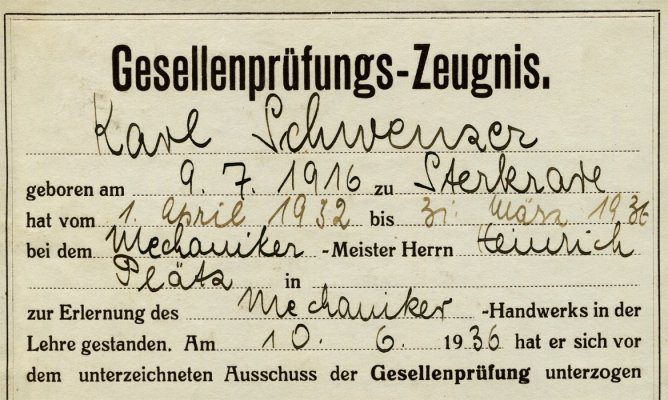 Gesellenprüfungs-Zeugnis.
Karl Schwenzer
geboren am 9. 7. 1916 zu Sterkrade
hat vom 1. April 1932 bis 31. März 1936
bei dem Mechaniker -Meister Herrn Heinrich
Plätz in
zur Erlernung des Mechaniker -Handwerks in der
Lehre gestanden. Am 10. 6. 1936 hat er sich vor
dem unterzeichneten Ausschuss der Gesellenprüfung unterzogen